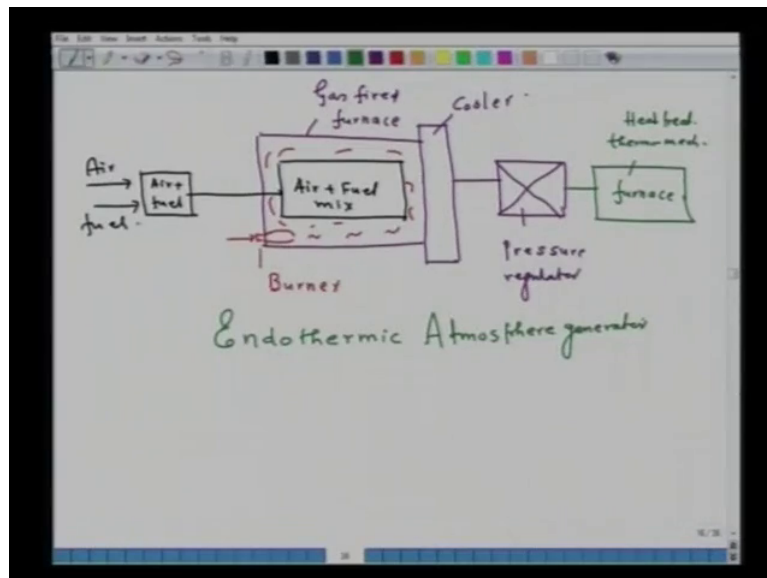 File Edit View Insert Actions Tools Help
Gas fired
furnace
Cooler.
Heat treat.
thermo mech.
Air
fuel.
Air+
fuel
Air + Fuel
mix
furnace
Pressure
regulator
Burner
Endothermic Atmosphere generator